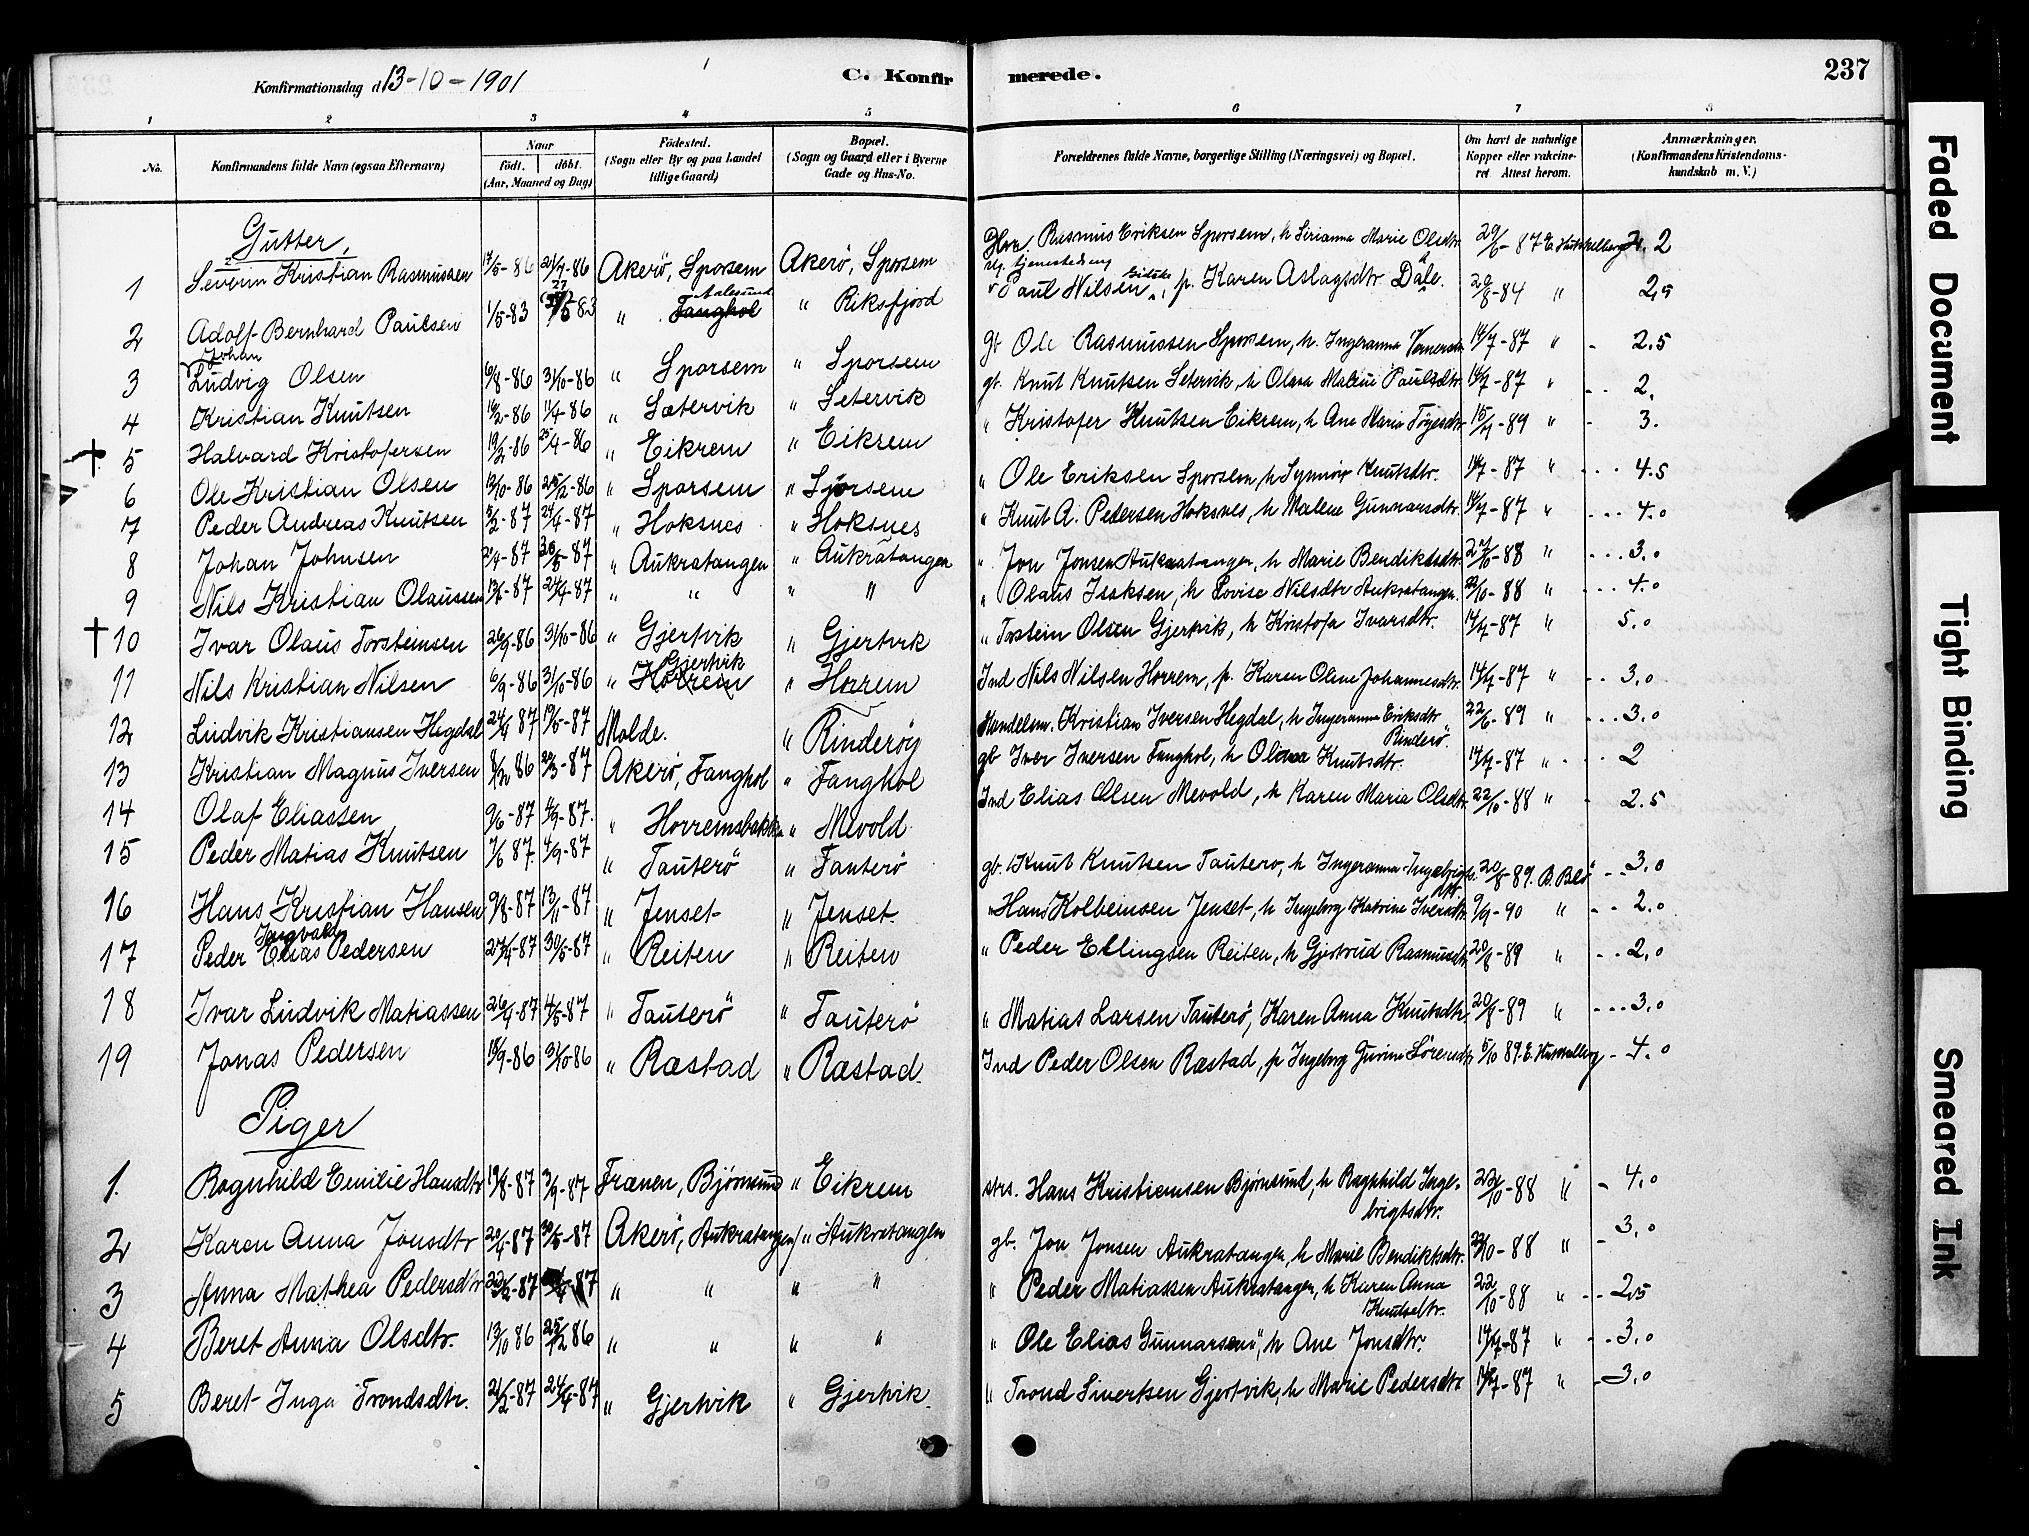 Konfirmationsdag d. 13-10-1901 C. Konfirmerede. 237
1 2 3 4 5 6 7 8
No. Konfirmandens fulde Navn (ogsaa Efternavn) Naar født. døbt. (Aar, Maaned og Dag) Fødested. (Sogn eller By og paa Landet tillige Gaard) Bopæl. (Sogn og Gaard eller i Byerne Gade og Hus-No. Forældrenes fulde Navne, borgerlige Stilling (Næringsvei) og Bopæl. Om havt de naturlige Kopper eller vakcineret. Attest herom. Anmærkninger. (Konfirmandens Kristendomskundskab m. V.)
Gutter.
1 Severin Kristian Rasmussen 17/5-86 Akerö, Sporsem Akerö, Sporsem Rasmus Eriksen Sporsem, h Sirianna Marie Olsdtr 20/6-87 2
2 Adolf Bernhard Paulsen 1/5-83 " Fanghol Aalesund " Riksfjord Paul Nilsen, p. Karen Aslagsdtr Dale. 20/8-84 " 2,5
3 Johan Ludvig Olsen 6/8-86 31/10-86 " Sporsem " Sporsem gb Ole Rasmussen Sporsem, h. Ingeranna 14/7-87 " - 2.5
4 Kristian Knutsen 14/2-86 11/4-86 " Sætervik " Setervik gb. Knut Knutsen Setervik, h Olava Malene Paulsdtr 14/7-87 " - - 2.
† 5 Halvard Kristofersen 19/2-86 25/4-86 " Eikrem " Eikrem " Kristofer Knutsen Eikrem, h Ane Marie 15/7-89 " - 3.
6 Ole Kristian Olsen 13/10-86 25/12-86 " Sporsem " Sporsem " Ole Eriksen Sporsem, h Synnöv Knutsdtr. 14/7-87 " - - - 4.5
7 Peder Andreas Knutsen 5/2-87 24/4-87 " Hoksnes " Hoksnes " Knut A. Pedersen Hoksnes, h Malene Gunnarsdtr. 14/7-87 " - - - 4.0
8 Johan Johnsen 20/4-87 30/5-87 " Aukratangen " Aukratangen " Jon Jonsen Aukratangen, h Marie Bendiktsdtr. 22/10-88 " - - - 3.0
9 Nils Kristian Olaussen 24/4-87 " " " " " Olaus Isaksen, h Lovise Nilsdtr Aukratangen. 22/10-88 " - - - 4.0
† 10 Ivar Olaus Torsteinsen 26/9-86 31/10-86 " Gjertvik " Gjertvik " Torstein Olsen Gjertvik, h Kristofa Ivarsdtr. 14/7-87 " 5.0
11 Nils Kristian Nilsen 6/9-86 31/10-86 " Horrem Gjertvik " Horrem Ind Nils Nilsen Horrem, p. Karen Oline Johannesdtr. 14/7-87 " - - 3,0
12 Ludvik Kristiansen Hegdal 24/4 87 19/5-87 Molde. " Rinderöy Handelsm. Kristian Iversen Hegdal, h Ingeranna Eriksdtr Rinderö. 22/6-89 " - - - 3.0
13 Kristian Magnus Iversen 8/12 86 20/3-87 Akerö, Fanghol " Fanghol gb Iver Iversen Fanghol, h Olava Knutsdtr. 14/7-87 " - - - 2
14 Olaf Eliassen 9/6-87 4/9-87. " Horremsbakken " Mevold Ind Elias Olsen Mevold, h Karen Maria Olsdtr. 22/10-88 " - 2.5
15 Peder Matias Knutsen 7/6 87. 4/9-87 " Tauterö " Tauterö gb. Knut Knutsen Tauterö, h Ingeranna Ingebrigtsdtr. 20/8-89. - - 3.0
16 Hans Kristian Hansen 9/8-87 13/11-87 " Jenset " Jenset. " Hans Kolbeinsen Jenset, h Ingeborg Katrine Iversdtr 9/9-90 " - - 2.0
17 Peder Ingvald Elias Pedersen 27/4-87 30/5-87 " Reiten " Reiten " Peder Ellingsen Reiten, h Gjertrud Rasmusdtr 20/8-89 " - - 2,0
18 Ivar Ludvik Matiassen 26/4-87 " Tauterö " Tauterö " Matias Larsen Tauterö, Karen Anna Knutsdtr. 20/8-89 " - - - 3.0
19 Jonas Pedersen 18/9-86 31/10 86 " Rastad " Rastad. Ind Peder Olsen Rastad, p Ingeborg 5/10 89. - 4.0
Piger
1. Ragnhild Emilie Hansdtr 19/8-87 3/9-87 Frænen, Bjørnsund " Eikrem strs. Hans Kristiansen Bjørnsund, h Ragnhild Ingebrigtsdtr. 22/10-88 " - 4.0
2 Karen Anna Jonsdtr 20/4-87 30/5-87 Akerö, Aukratangen " Aukratangen gb. Jon Jonsen Aukratangen, h Marie Bendiktsdtr. 22/10-88 " - 3.0
3 Anna Mathea Pedersdtr 22/2-87 " " " " " Peder Matiassen Aukratangen, h Karen Anna Knutsdtr. 22/10-88 " - - 2,5
4 Beret Anna Olsdtr. 13/10 86 25/12 86 " " " " " Ole Elias Gunnarsen, h Ane Jonsdtr. 14/7-87 " - - 3,0
5 Beret Inga Trondsdtr. 21/2-87 24/4-87 " Gjertvik " Gjertvik. " Trond Sivertsen Gjertvik, h Marie Pedersdtr 14/7-87 " - 3,0
Faded Document
Tight Binding
Smeared Ink